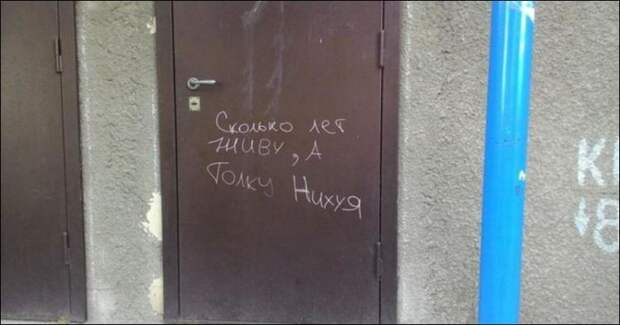 Сколько лет
живу, а
Толку Нихуя
К
↓8